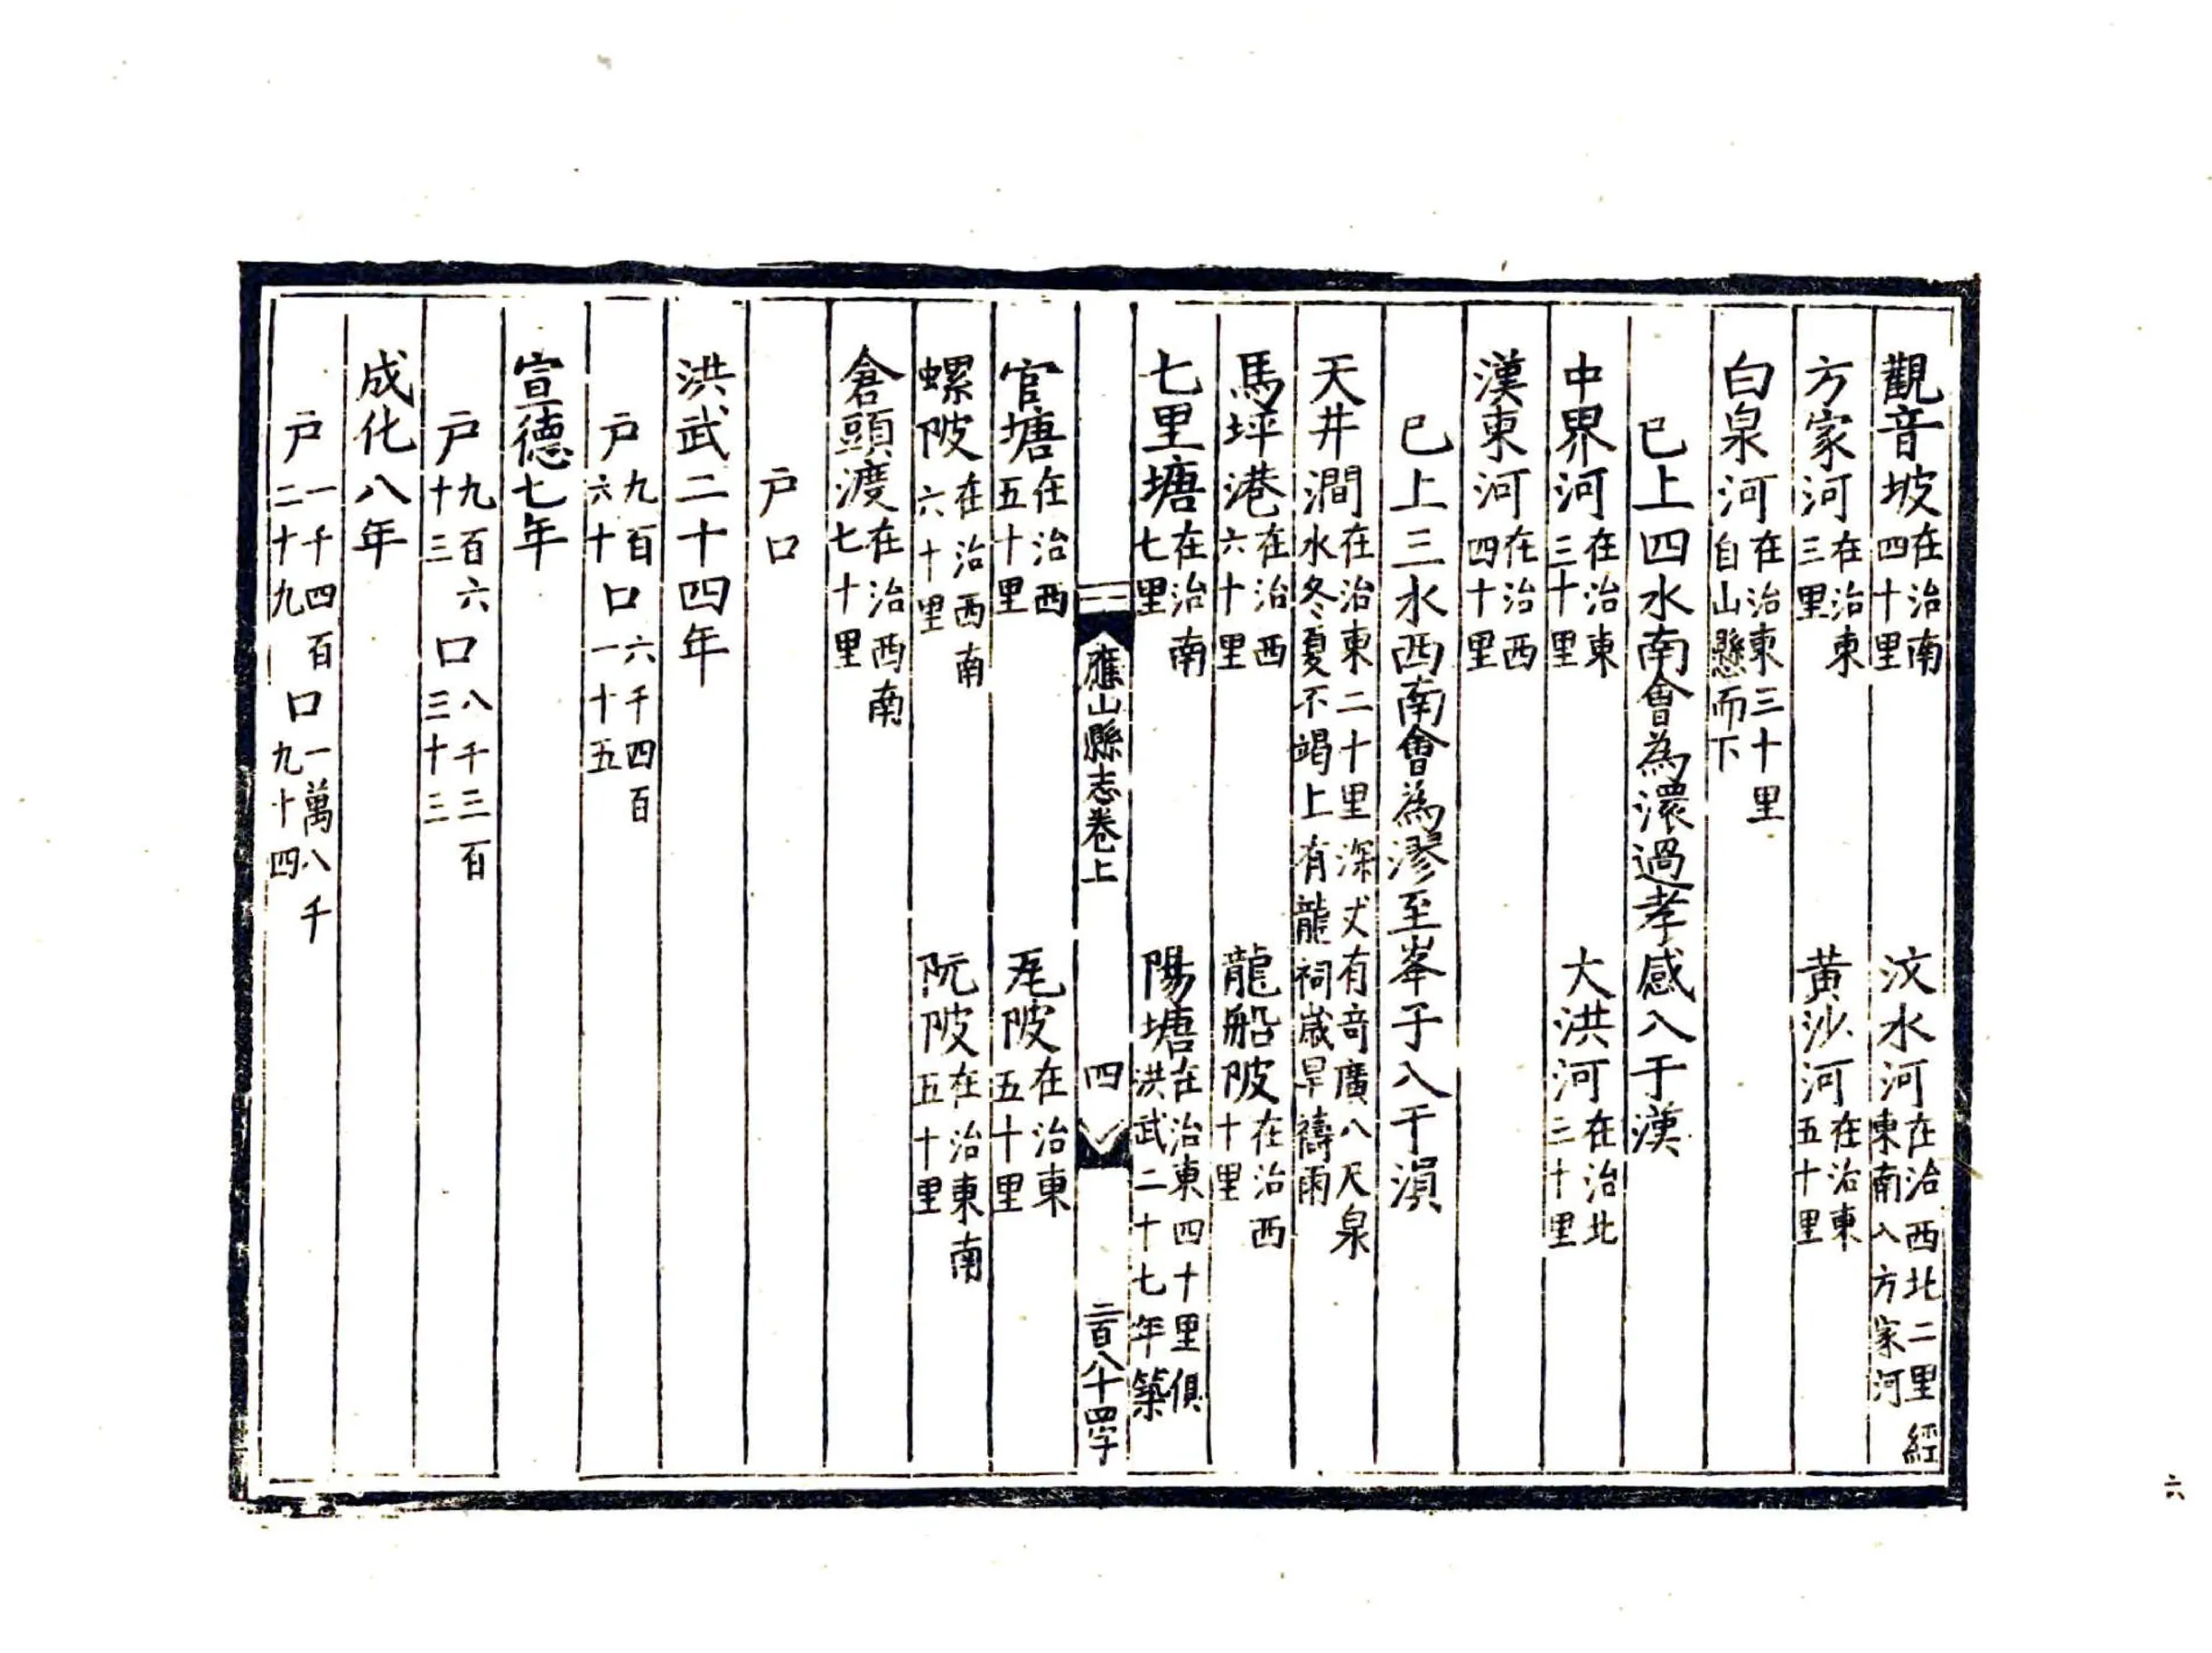 觀音坡在治南四十里　汶水河在治西北二里經東南入方家河
方家河在治東三里　黃沙河在治東五十里
白泉河在治東三十里自山懸而下
已上四水南會為澴過孝感入于漢
中界河在治東三十里　大洪河在治北三十里
漢東河在治西四十里
已上三水西南會為漻至峯子入于溳
天井澗在治東二十里深丈有竒廣八尺泉水冬夏不竭上有龍祠歲旱禱雨
馬坪港在治西六十里　龍船陂在治西十里
七里塘在治南七里　陽塘在治東四十里俱洪武二十七年築
應山縣志卷上　四　二百八十四字
官塘在治西五十里　陂在治東五十里
螺陂在治西南六十里　阮陂在治東南五十里
倉頭渡在治西南七十里
戶口
洪武二十四年
戶九百六十　口六千四百一十五
宣德七年
戶九百六十三　口八千三百三十三
成化八年
戶一千四百二十九　口一萬八千九十四
六